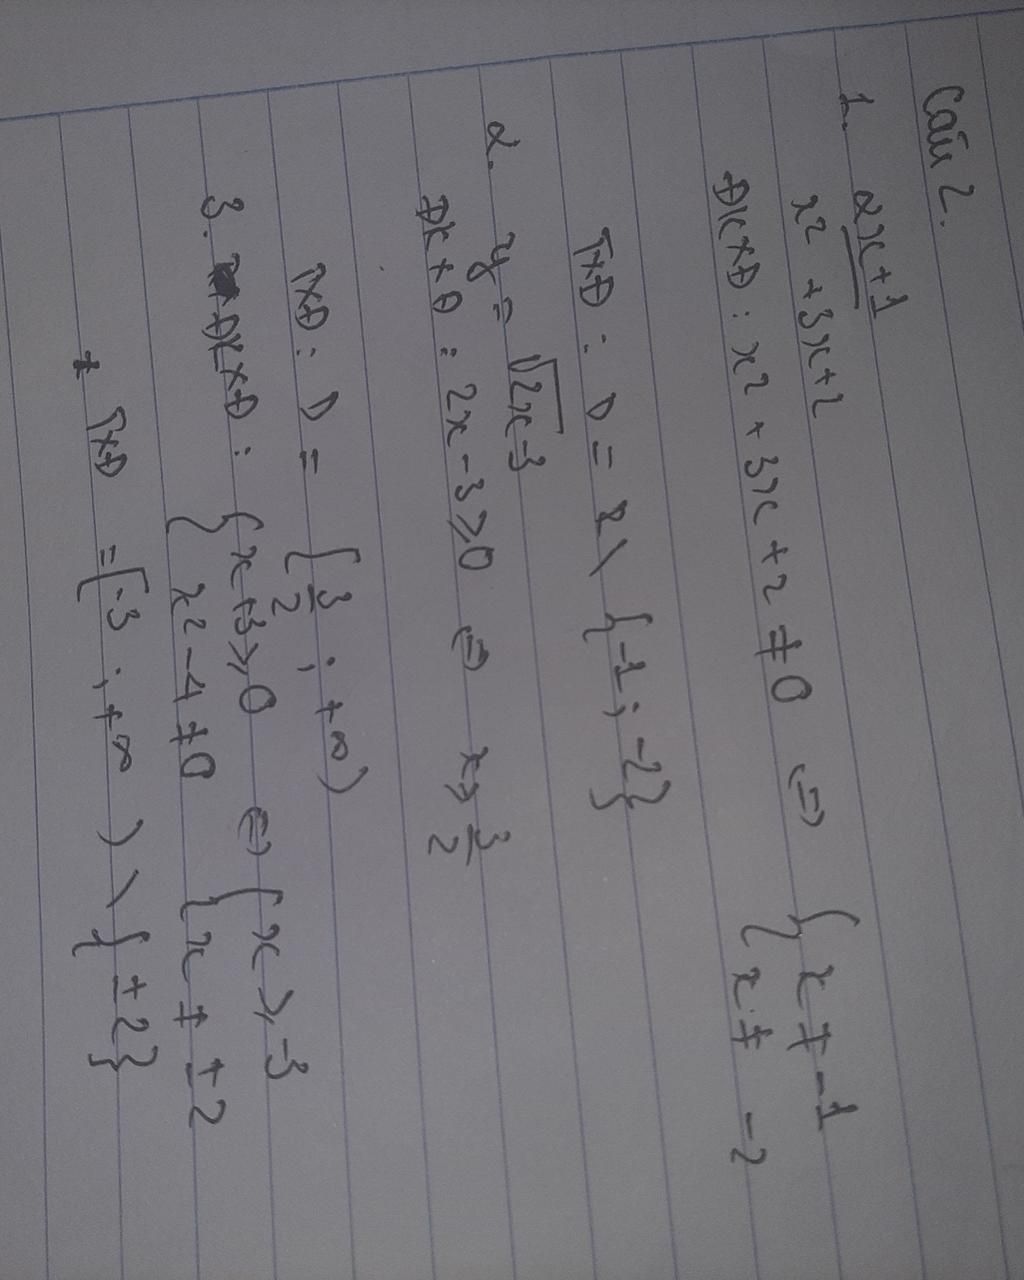 Câu 2.
1. 2x+1
x² + 3x + 2
ĐKXĐ : x² + 3x + 2 ≠ 0 ⇔ { x ≠ -1
{ x ≠ -2
TXĐ : D = R \ {-1 ; -2}
2. y = √2x-3
ĐKXĐ : 2x - 3 ≥ 0 ⇔ x ≥ 3/2
TXĐ : D = [ 3/2 ; +∞ )
3. ĐKXĐ : { x+3 ≥ 0 ⇔ { x ≥ -3
{ x² - 4 ≠ 0 { x ≠ ±2
* TXĐ = [-3 ; +∞ ) \ { ±2}